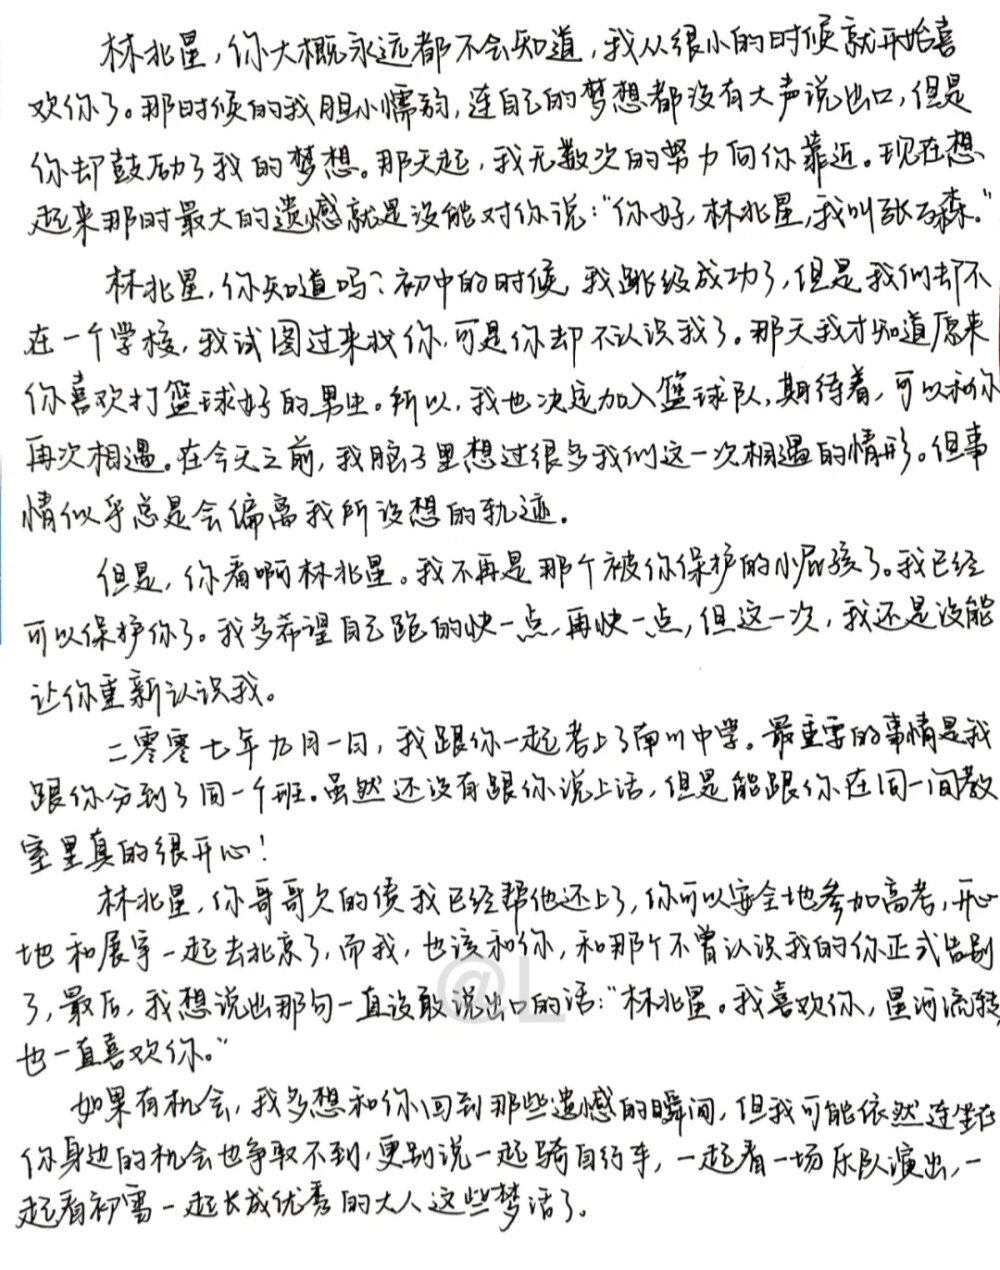 林北星，你大概永远都不会知道，我从很小的时候就开始喜
欢你了。那时候的我胆小懦弱，连自己的梦想都没有大声说出口，但是
你却鼓励了我的梦想。那天起，我无数次的努力向你靠近。现在想
起来那时最大的遗憾就是没能对你说：“你好，林北星，我叫张万森。”
林北星，你知道吗？初中的时候，我跳级成功了，但是我们却不
在一个学校，我试图过来找你，可是你却不认识我了。那天我才知道原来
你喜欢打篮球好的男生。所以，我也决定加入篮球队，期待着，可以和你
再次相遇。在今天之前，我脑子里想过很多我们这一次相遇的情形。但事
情似乎总是会偏离我所设想的轨迹。
但是，你看啊林北星。我不再是那个被你保护的小屁孩了。我已经
可以保护你了。我多希望自己跑的快一点，再快一点，但这一次，我还是没能
让你重新认识我。
二零零七年九月一日，我跟你一起考上了南川中学。最重要的事情是我
跟你分到了同一个班。虽然还没有跟你说上话，但是能跟你在同一间教
室里真的很开心！
林北星，你哥哥欠的债我已经帮他还上了，你可以安全地参加高考，开心
地和展宇一起去北京了，而我，也该和你，和那个不曾认识我的你正式告别
了，最后，我想说出那句一直没敢说出口的话：“林北星。我喜欢你，星河流转，
也一直喜欢你。”
如果有机会，我多想和你回到那些遗憾的瞬间，但我可能依然连坐在
你身边的机会也争取不到，更别说一起骑自行车，一起看一场乐队演出，一
起看初雪一起长成优秀的大人这些梦话了。
@L